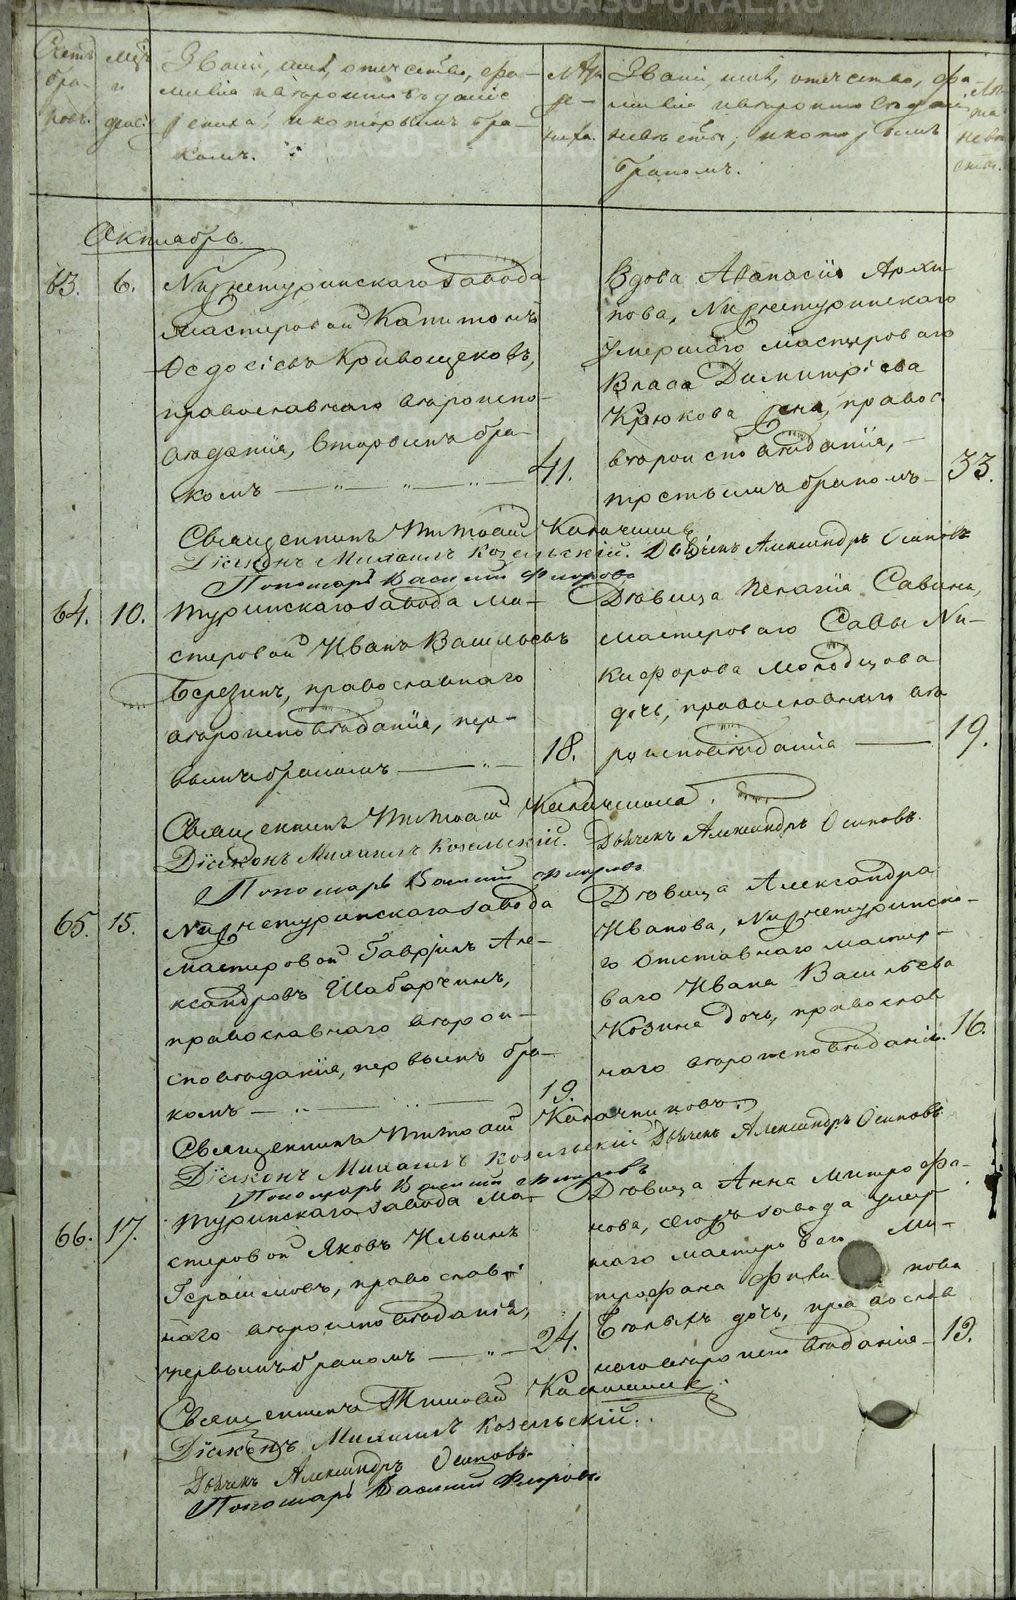 METRIKI.GASO-URAL.RU
Счетъ браковъ.
Мѣсяцъ и день.
Званiе, имя, отчество, фа-
милiя и вѣроисповѣданiе
жениха, и которымъ бра-
комъ.
Лѣта жениха.
Званiе, имя, отчество, фа-
милiя и вѣроисповѣданiе
невѣсты, и которымъ
бракомъ.
Лѣта невѣсты.
Октябрь.
63. 6. Нижнетуринскаго завода
мастеровой Капитонъ
Ѳедосѣевъ Кривощековъ,
православнаго вѣроиспо-
вѣданiя, вторымъ бра-
комъ 41.
Вдова Аѳанасiя Архи-
пова, Нижнетуринскаго
умершаго мастероваго
Власа Димитрiева
Крюкова жена, правос.
вѣроисповѣданiя,
третьимъ бракомъ 33.
Священникъ Тимоѳей Калачниковъ
Дiаконъ Михаилъ Козельскiй. Дьячекъ Александръ Осиповъ
Пономарь Василiй Флоровъ
64. 10. Туринскаго завода ма-
стеровой Иванъ Васильевъ
Березинъ, православнаго
вѣроисповѣданiя, пер-
вымъ бракомъ 18.
Дѣвица Пелагiя Савина,
мастероваго Савы Ни-
кифорова Молодцова
дочь, православнаго вѣ-
роисповѣданiя 19.
Священникъ Тимоѳей Калачниковъ.
Дiаконъ Михаилъ Козельскiй. Дьячекъ Александръ Осиповъ.
Пономарь Василiй Флоровъ
65. 15. Нижнетуринскаго завода
мастеровой Гаврiилъ Але-
ксандровъ Шабарчинъ,
православнаго вѣрои-
сповѣданiя, первымъ бра-
комъ 19.
Дѣвица Александра
Иванова, Нижнетуринска-
го отставнаго мастеро-
ваго Ивана Васильева
Козина дочь, православ-
наго вѣроисповѣданiя. 16.
Священникъ Тимоѳей Калачниковъ
Дiаконъ Михаилъ Козельскiй Дьячекъ Александръ Осиповъ
Пономарь Василiй Флоровъ
66. 17. Туринскаго завода ма-
стеровой Яковъ Ильинъ
Герасимовъ, православ-
наго вѣроисповѣданiя,
первымъ бракомъ 24.
Дѣвица Анна Митрофа-
нова, сегожъ завода умер-
шаго мастероваго Ми-
трофана
Бѣлыхъ дочь, православ-
наго вѣроисповѣданiя 19.
Священникъ Тимоѳей Калачниковъ.
Дiаконъ Михаилъ Козельскiй.
Дьячекъ Александръ Осиповъ.
Пономарь Василiй Флоровъ.
METRIKI.GASO-URAL.RU